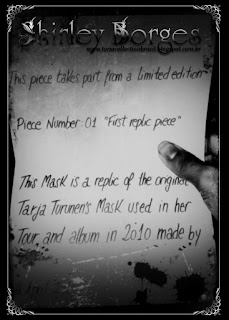 Shirley Borges
This piece takes part from a limited edition
Piece Number: 01 "First replic piece"
This Mask is a replic of the original
Tarja Turunen's Mask used in her
Tour and album in 2010 made by